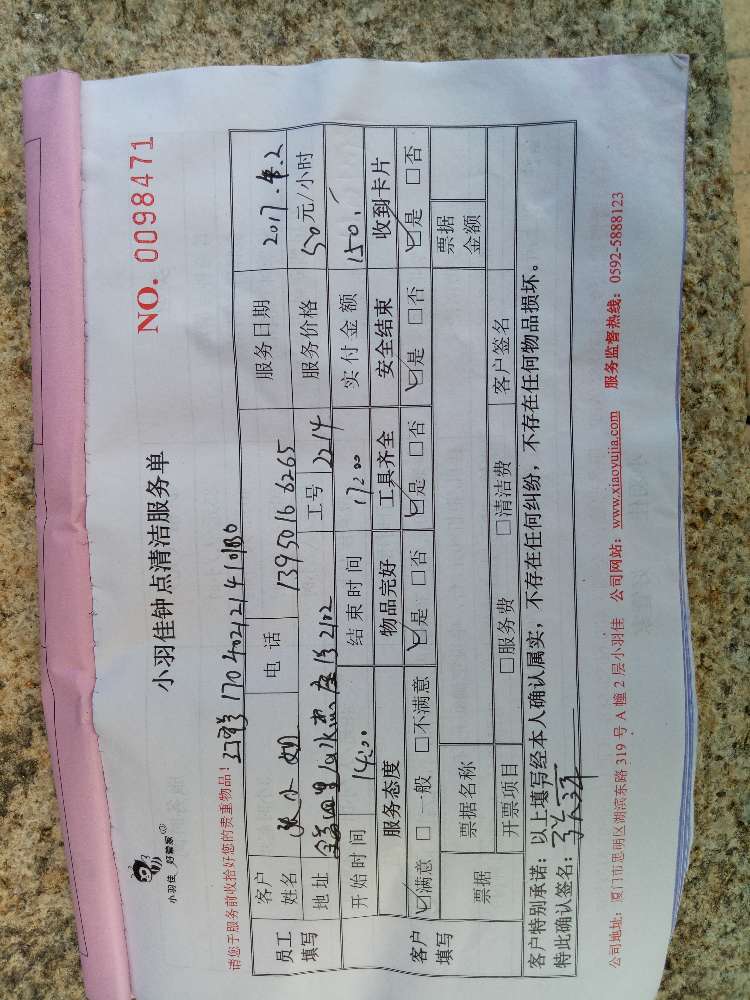 小羽佳 好管家
小羽佳钟点清洁服务单
NO. 0098471
请您于服务前收拾好您的贵重物品! 170402121410180
员工填写 客户姓名 张小姐 电话 13950166265 服务日期 2017.4.2
地址 水 2102 工号 2214 服务价格 50元/小时
开始时间 14:00 结束时间 17:00 实付金额 150.
客户填写 服务态度 物品完好 工具齐全 安全结束 收到卡片
☑满意 □一般 □不满意 ☑是 □否 ☑是 □否 ☑是 □否 ☑是 □否
票据 票据名称 票据金额
开票项目 □服务费 □清洁费 客户签名
客户特别承诺:以上填写经本人确认属实,不存在任何纠纷,不存在任何物品损坏。
特此确认签名:
公司地址:厦门市思明区湖滨东路319号A幢2层小羽佳 公司网站:www.xiaoyujia.com 服务监督热线:0592-5888123